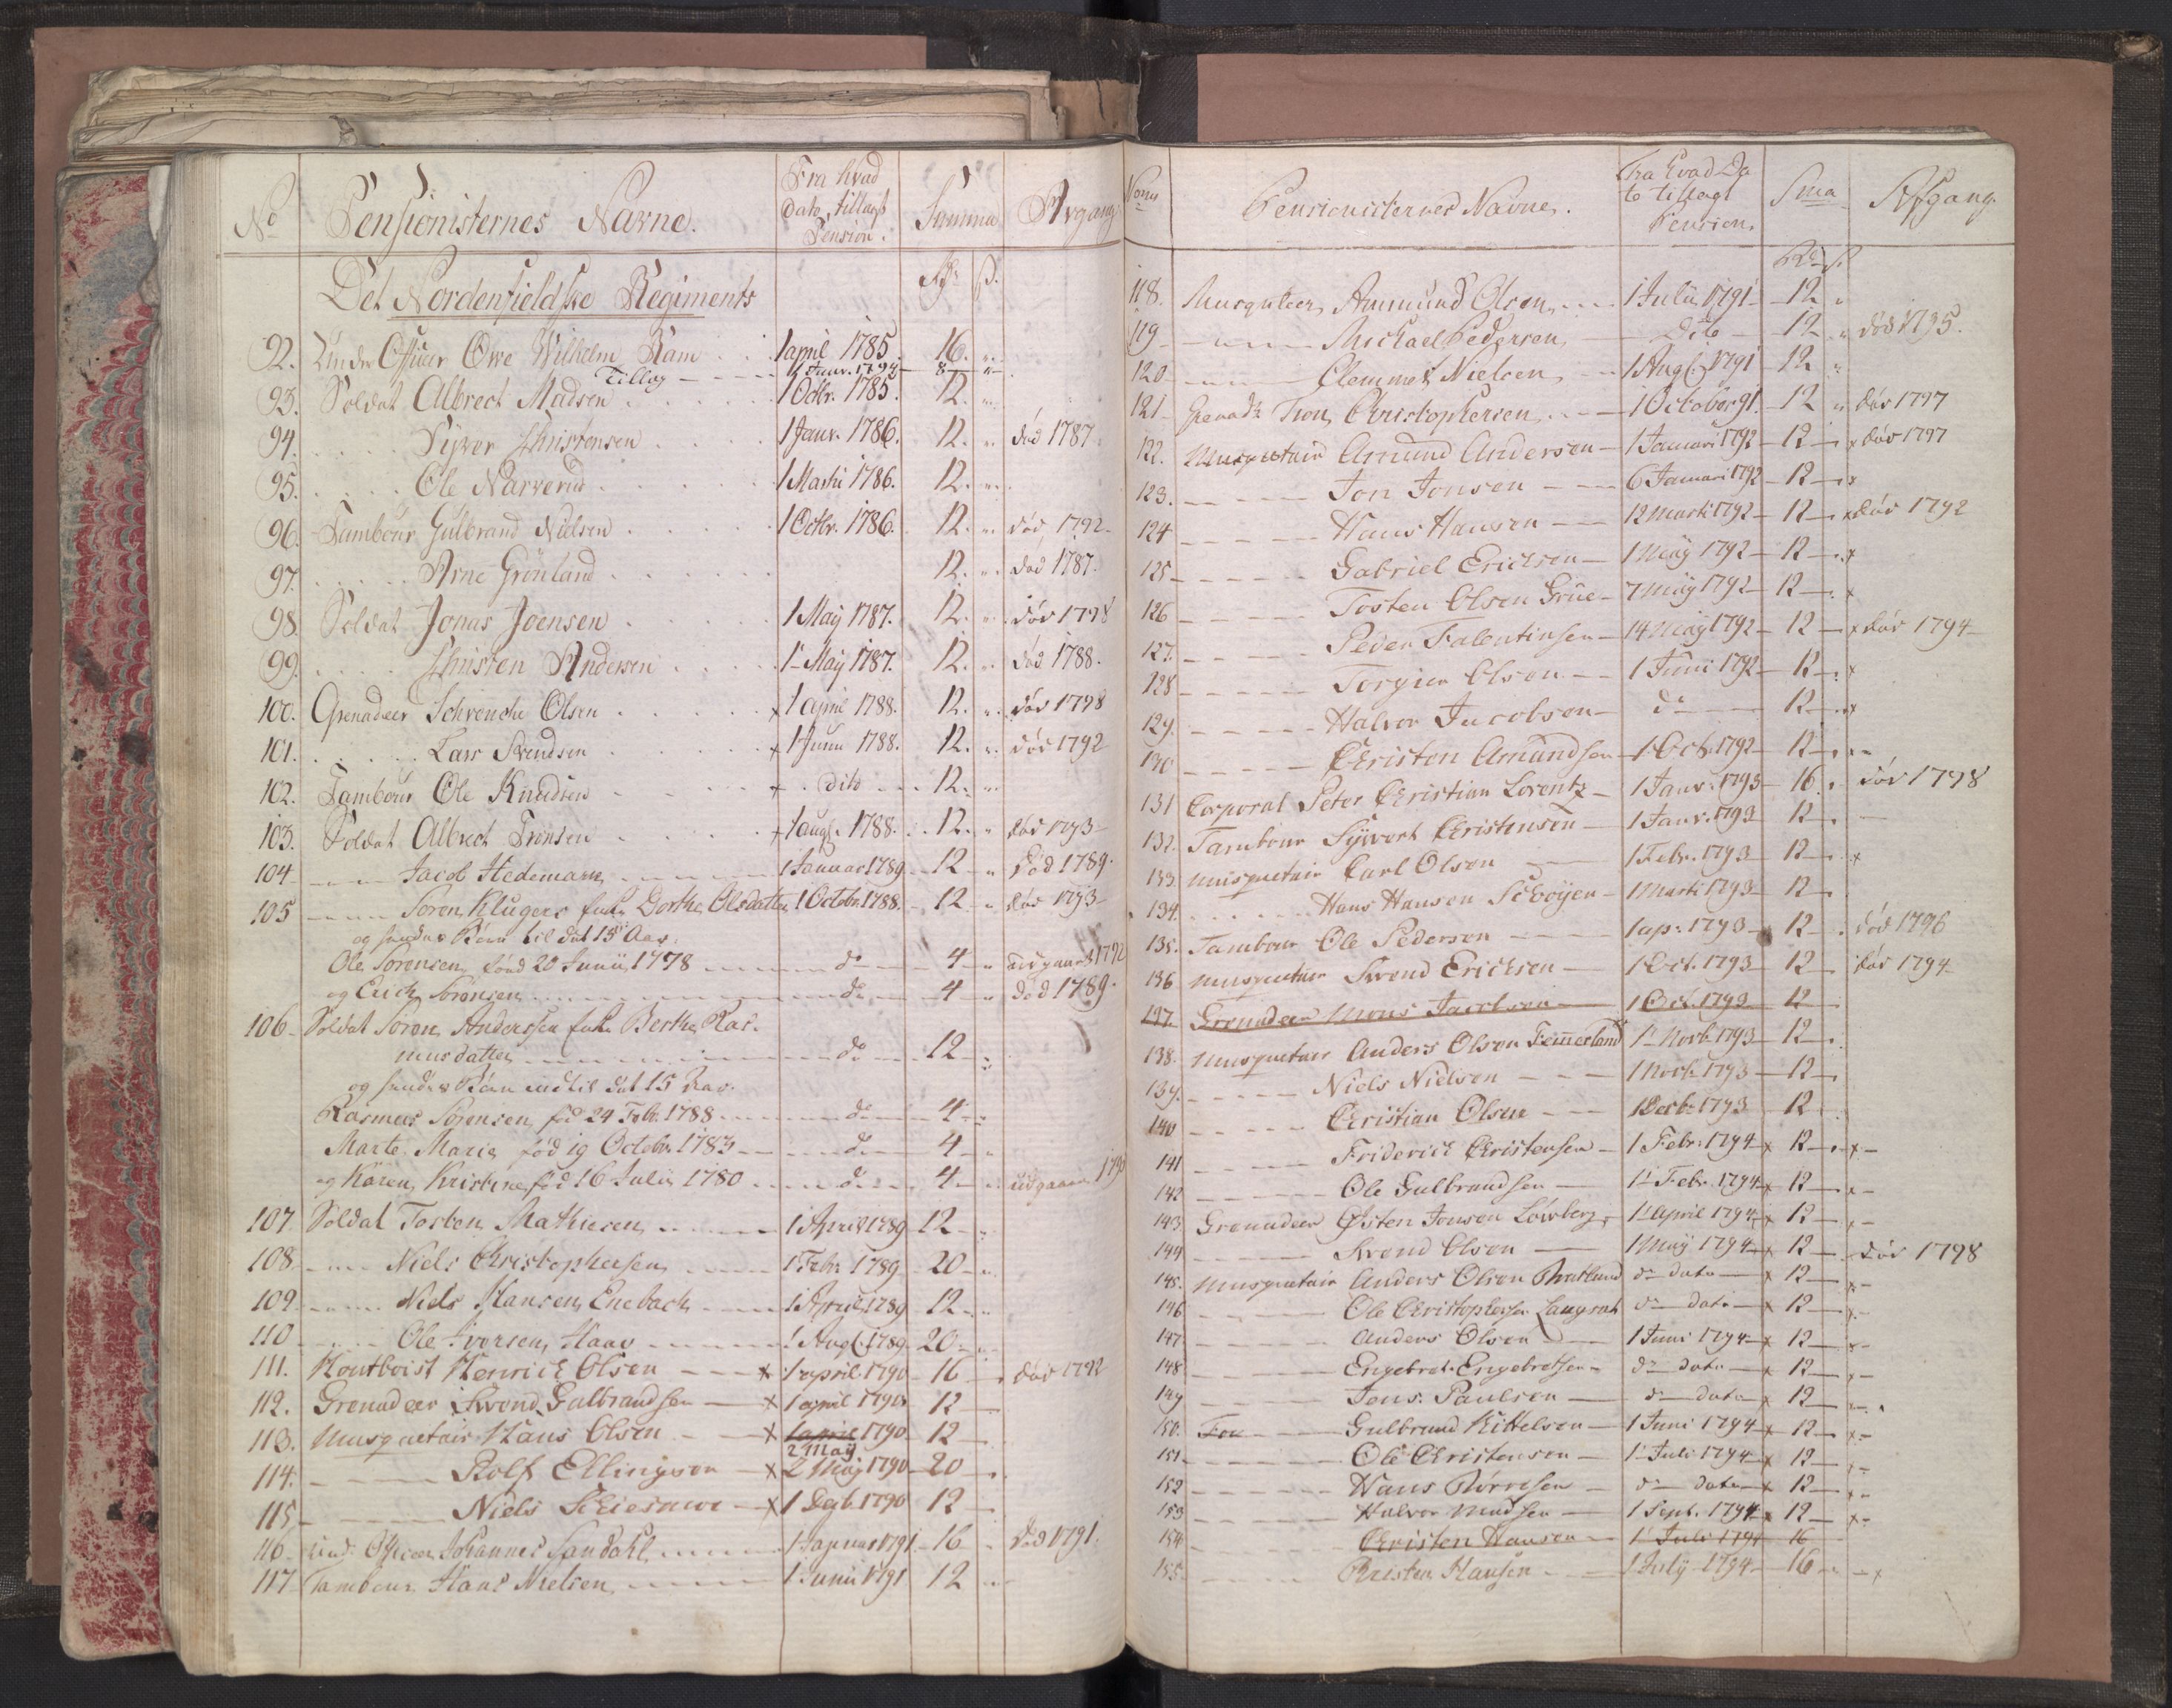 No Pensionisternes Navne. Fra hvad Dato tillagt Pension. Summa Afgang
Det Nordenfieldske Regiments Rdr ß.
92. Under Officier Owe Wilhelm Ram . . 1 april 1785. 16. "
Tillæg - - - 1 Janv. 1794 - 8 "
93. Soldat Albrect Madsen . . . . . 1 Octbr. 1785. 12. "
94. . . . . Syver Christensen . . . . 1 Janv. 1786. 12. " død 1787.
95. . . . . Ole Narverud . . . . . 1 Martii 1786. 12. "
96. Tambour Gulbrand Nielsen . . . . . 1 Octbr. 1786. 12. " død 1792.
97. . . . . Arne Grönland . . . . . . 12. " død 1787.
98. Soldat Jonas Joensen . . . . . 1 Maij 1787. 12. " død 1798
99. . . . . Christen Andersen . . . . 1 Maij 1787. 12. " død 1788.
100. Grenadeer Schvencke Olsen . . . . . x 1 april 1788. 12. " død 1798
101. . . . . Lars Svendsen . . . . . x 1 Junii 1788. 12. " død 1792
102. Tambour Ole Knudsen - . . . . x . dito . . . 12. "
103. Soldat Albrect Tronsen . . . . . x 1 augs. 1788. . 12. " død 1793
104 - - - Jacob Hedemark - - - - 1 Januar 1789 - 12 - " Død 1789.
105 - - - Søren Klügers Enke Dorthe Olsdatter 1 Octobr. 1788. - 12 - " død 1793
og hendes Børn til det 15de Aar.
Ole Sørensen, fød 20 Junii 1778 - - - do - 4 - " udgaaed 1792
og Erich Sørensen - - - - - do - 4 - " død 1789.
106 - Soldat Søren Anderssen Enke Berthe Ras-
musdatter - - - - - - do - 12 - "
og hendes Børn indtil det 15 Aar.
Rasmus Sørensen, fød 24 Febr. 1788 - - - do - 4 - "
Marte Marie, fød 19 Octobr. 1783 - - - do - 4 - "
og Karen Kristine, fød 16 Julii 1780 - - - do - 4 - " udgaaen
107. Soldat Tosten Mathiesen - - - 1 April 1789 12 - "
108 - - - Niels Christophersen - - - 1 Febr. 1789 - 20 - "
109 - - - Niels Hansen Enebach - - - 1 April 1789 12 - "
110 - - - Ole Iversen Haav - - - 1 Augs. 1789 - 20 - "
111. Houtboist Henrich Olsen - - - x 1 april 1790 - 16 - død 1792
112. Grenadeer Svend Gulbrandsen - x 1 april 1790 12
113. Musquetair Hans Olsen - - x 1 april 1790 12
2 May
114. - - Rolf Ellingson - x 2 Maij 1790 - 20
115 - - Niels - x 1 1790 12
116 - Und. Officier Johannes Sandahl - - - 1 Januar 1791 - 16 - Død 1791.
117 Tambour Hans Nielsen - - - 1 Junii 1791 12
Nomr Pensionisternes Navne. Fra hvad Dato tillagt Pension. Sma Afgang.
Rd. ß.
118. Musqueteer Ammund Olsen - - - 1 Julii 1791 - 12 "
119 - - - Michael Pedersen - Dito - 12 " død 1795.
120 - - - Clemmet Nielsen - - 1 Augs. 1791 - 12 "
121 - Grenadr. Tron Christophersen - - - 1 October 91. - 12 " død 1797
122. Musquetair Amund Andersen - 1 Januari 1792 - 12 - x død 1797
123. - - - Jon Jonsen - - 6 Januari 1792 - 12 - x
124 - - - Hans Hansen - - 12 Marti 1792 - 12 - x død 1792
125 - - - Gabriel Erichsen - 1 Maij 1792 - 12 - x
126 - - - Tosten Olsen Grue - 7 Maij 1792 - 12 - x
127. - - - Peder Falentinsen - 14 Maij 1792 - 12 - x død 1794
128 - - - Torgier Olsen - - 1 Juni 1792 - 12 - x
129. - - - Halvor Jacobsen - do - 12 - x
130 - - - Christen Amundsen - 1 Oct. 1792 - 12 - "
131 Corporal Peter Christian Lorentz - 1 Janv. 1793 - 16 " død 1798
132. Tambour Syvert Christensen - 1 Janv. 1793 12
133. Musquetair Carl Olsen - 1 Febr. 1793 - 12 - x
134. . . . . Hans Hansen - 1 Marti 1793 - 12 -
135. Tambour Ole Pedersen - - - 1 apr. 1793 - 12 - død 1796
136 Musquetair Svend Erichsen - 1 Oct. 1793 - 12 - død 1794
137. Grenadeer Mons Jacobsen - 1 Oct. 1793 - 12
138. Musquetair Anders Olsen Femerland 1 Novb. 1793 - 12 -
139. - - - Niels Nielsen - - - 1 Novb. 1793 - 12 -
140 - - - Christian Olsen - - 1 Decbr. 1793 12
141 - - - Friderich Christensen - 1 Febr. 1794 x 12 - x -
142 - - - Ole Gulbrandsen - 1 Febr. 1794 x 12 - x -
143 Grenadeer Østen Jonsen Løvberg - 1 April 1794 x 12 - x -
144 - - - Svend Olsen - 1 Maij 1794 x 12 - død 1798
145. Musquetair Anders Olsen Bratlund do dato - x 12 - x -
146 - - - Ole Christophersen Langsæt do dato - x 12 - x -
147 - - - Anders Olsen - 1 Juni 1794 - x 12 - x -
148 - - - Engebret Engebretsen - do dato - x 12 - x -
149 - - - Jens Paulsen - do dato x 12 -
150. - - Gulbrand Kittelsen - 1 Juni 1794 x 12 - x -
151 - - - Ole Christensen - 1 Juli 1794 x 12 - x -
152 - - - Hans Børresen - do dato x 12 - x -
153 - - - Halvor Madsen - 1 Sept. 1794 x 12 - x -
154 - - - Christen Hansen - 1 Juli 1794 16
155 - - - Christen Hansen - - 1 July 1794 - 16 - x